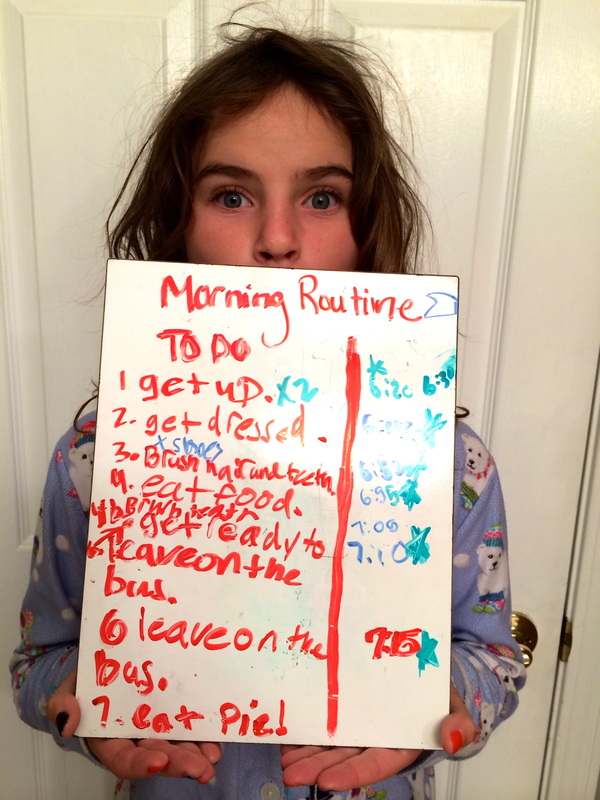 Morning Routine
TO DO
1 get up. x2 6:20 6:30
2. get dressed.
+ shoes
3. Brush hair and teeth.
4. eat food.
4b. Brush teeth 7:00
get ready to 7:10
leave on the
bus.
6 leave on the 7:15
bus.
7. eat Pie!